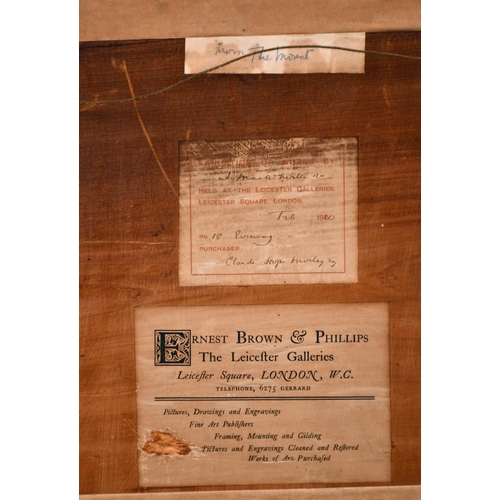 From The Mount
BY
HELD AT THE LEICESTER GALLERIES
LEICESTER SQUARE, LONDON,
Feb 19
No. 18 Evening
PURCHASER
Claude
ERNEST BROWN & PHILLIPS
The Leicester Galleries
Leicester Square, LONDON, W.C.
TELEPHONE, 6275 GERRARD
Pictures, Drawings and Engravings
Fine Art Publishers
Framing, Mounting and Gilding
Pictures and Engravings Cleaned and Restored
Works of Art Purchased